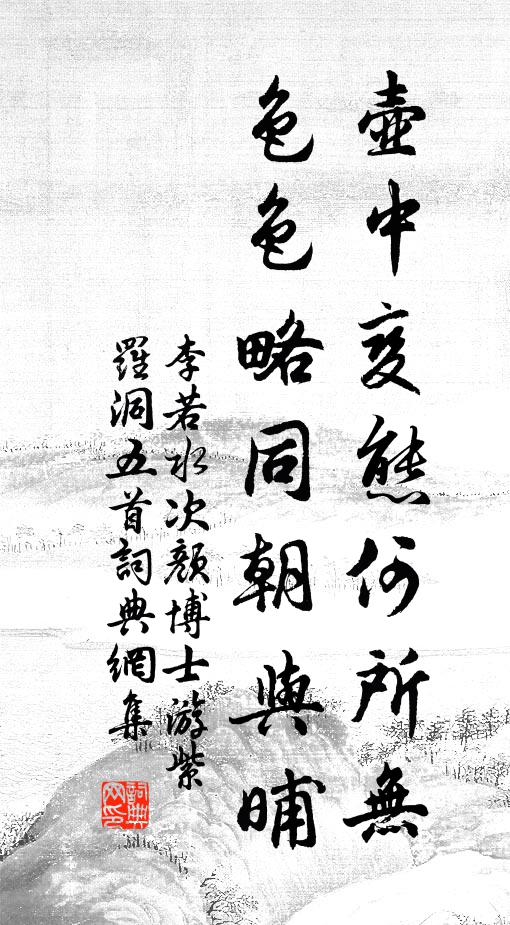 壺中变態何所無
色色略同朝與晡
李若水次顏博士游紫
羅洞五首詞典網集
詞典
网印